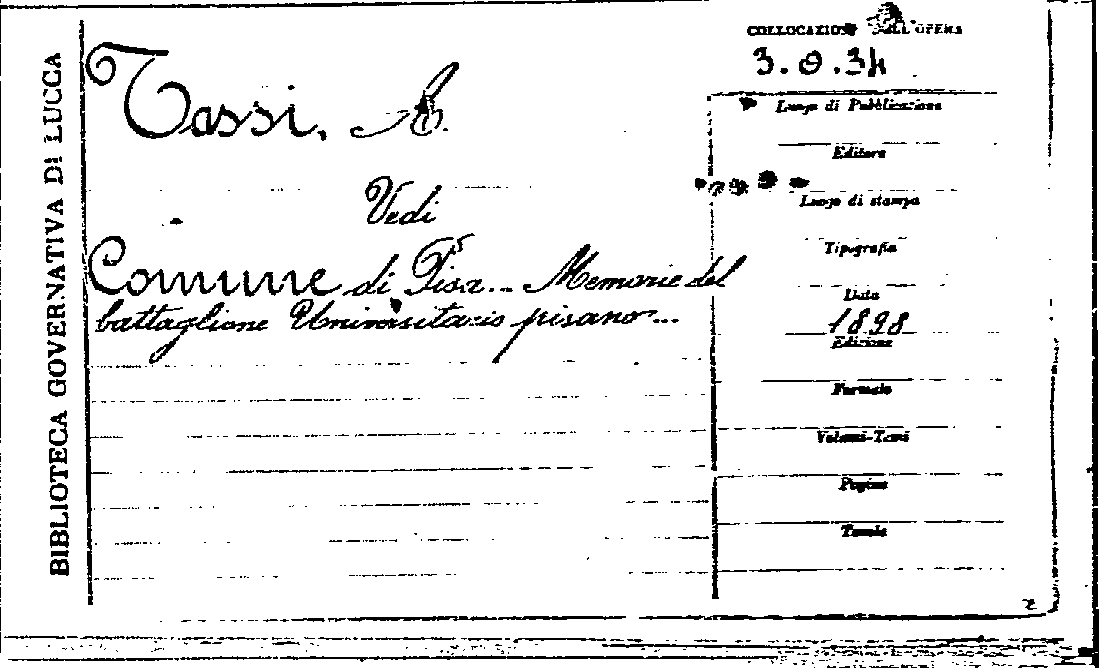 BIBLIOTECA GOVERNATIVA DI LUCCA
COLLOCAZIONE DELL'OPERA
3. O. 34
Tassi, A.
Vedi
Comune di Pisa... Memorie del
battaglione Universitario pisano...
Luogo di Pubblicazione
Editore
Luogo di stampa
Tipografia
Data
1898
Edizione
Formato
Volumi-Tomi
Pagine
Tavole